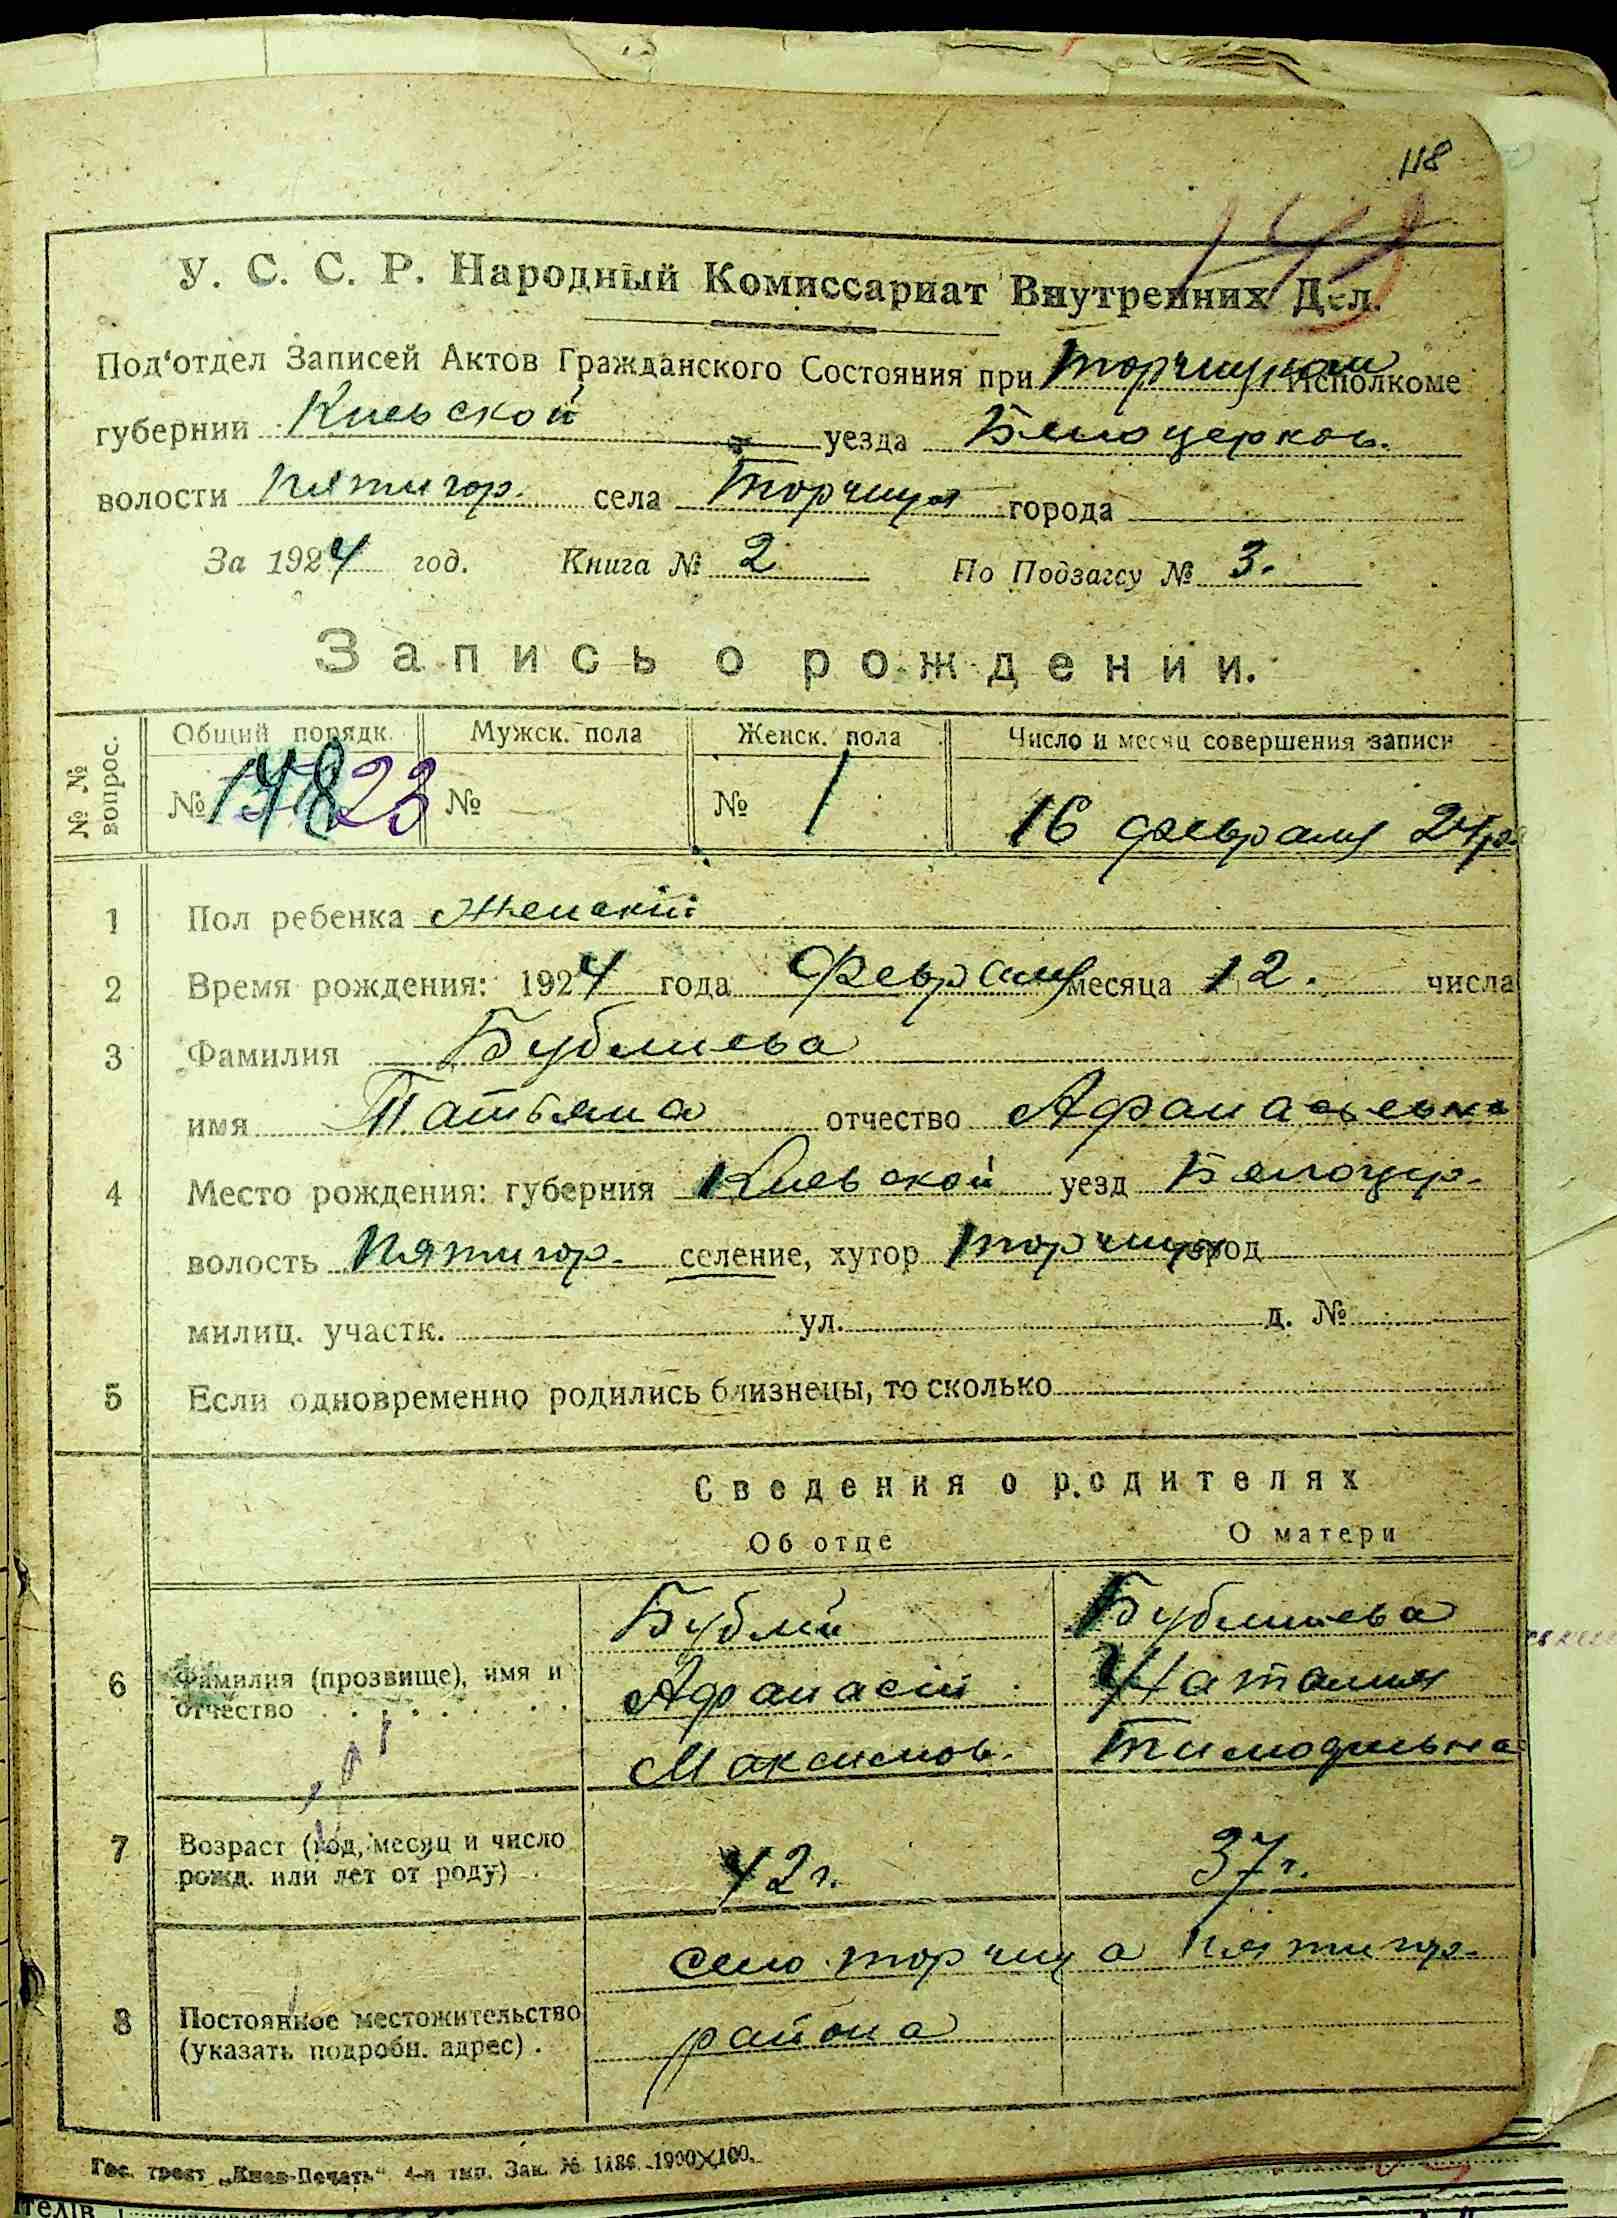 118
У. С. С. Р. Народный Комиссариат Внутренних Дел.
Под‘отдел Записей Актов Гражданского Состояния при Торчицком Исполкоме
губернии Киевской уезда Белоцерков.
волости Пятигор. села Торчица города
За 1924 год. Книга № 2 По Подзагсу № 3.
Запись о рождении.
№ № вопрос. Общий порядк. Мужск. пола Женск. пола Число и месяц совершения записи
№ № № 1 16 февраля 24 г.
1 Пол ребенка женскій
2 Время рождения: 1924 года Февраля месяца 12. числа
3 Фамилия Бублиева
имя Татьяна отчество Афанасьевна
4 Место рождения: губерния Киевской уезд Белоцер.
волость Пятигор. селение, хутор Торчица город
милиц. участк. ул. д. №
5 Если одновременно родились близнецы, то сколько
Сведения о родителях
Об отце О матери
Бублій Бублиева
6 Фамилия (прозвище), имя и Афанасій Наталия
отчество Максимов. Тимофевна
7 Возраст (год, месяц и число
рожд. или лет от роду) 42 г. 37 г.
село Торчица Пятигор.
8 Постоянное местожительство района
(указать подробн. адрес).
Гос. трест „Киев-Печать“ 4-я тип. Зак. № 1186—1900×100.
телів